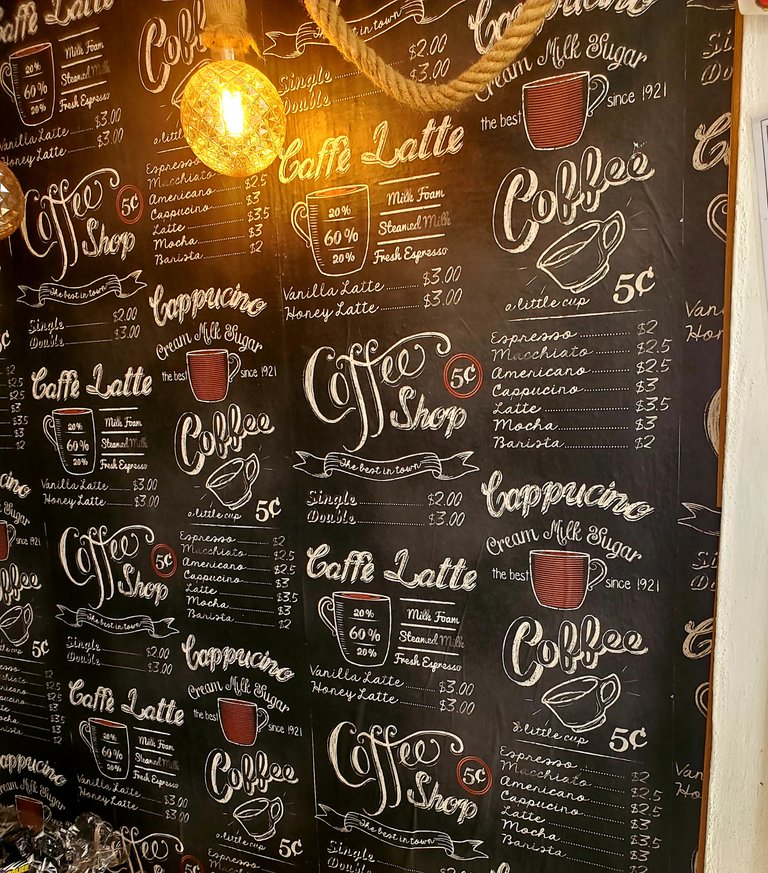 Caffè Latte
20%
60%
20%
Milk Foam
Steamed Milk
Fresh Espresso
Vanilla Latte $3.00
Honey Latte $3.00
Coffee Shop
5¢
The best in town
Single $2.00
Double $3.00
Caffè Latte
20%
60%
20%
Milk Foam
Steamed Milk
Fresh Espresso
Vanilla Latte $3.00
Honey Latte $3.00
Coffee Shop
5¢
The best in town
Single $2.00
Double $3.00
Caffè Latte
20%
60%
20%
Milk Foam
Steamed Milk
Fresh Espresso
Vanilla Latte $3.00
Honey Latte $3.00
Coffee
a little
Espresso
Macchiato $2.5
Americano $2.5
Cappucino $3
Latte $3.5
Mocha $3
Barista $2
Cappucino
Cream Milk Sugar
the best
since 1921
Coffee
a little cup
5¢
Espresso $2
Macchiato $2.5
Americano $2.5
Cappucino $3
Latte $3.5
Mocha $3
Barista $2
Cappucino
Cream Milk Sugar
the best
since 1921
Coffee
a little cup
5¢
Espresso
The best in town
Single $2.00
Double $3.00
Caffè Latte
20%
60%
20%
Milk Foam
Steamed Milk
Fresh Espresso
Vanilla Latte $3.00
Honey Latte $3.00
Coffee Shop
5¢
The best in town
Single $2.00
Double $3.00
Caffè Latte
20%
60%
20%
Milk Foam
Steamed Milk
Fresh Espresso
Vanilla Latte $3.00
Honey Latte $3.00
Coffee Shop
5¢
The best in town
Single $2.00
Double
Cappucino
Cream Milk Sugar
the best
since 1921
Coffee
a little cup
5¢
Espresso $2
Macchiato $2.5
Americano $2.5
Cappucino $3
Latte $3.5
Mocha $3
Barista $2
Cappucino
Cream Milk Sugar
the best
since 1921
Coffee
a little cup
5¢
Espresso $2
Macchiato $2.5
Americano $2.5
Cappucino $3
Latte $3
Mocha $3
Barista $2